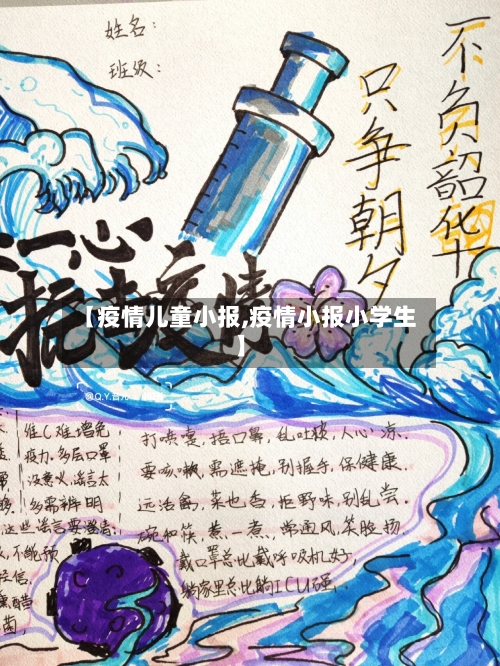 姓名：
班级：
不负韶华
只争朝夕
一心
抗疫情
【疫情儿童小报,疫情小报小学生
】
维C难增免
疫力,多层口罩
没意义,谣言太
多需辨明
这些谣言要警惕.
不能预
醋
打喷嚏,捂口鼻,乱吐痰,人心凉.
要咳嗽,需遮掩,别握手,保健康.
远活禽,菜也香,拒野味,别乱尝.
碗和筷,煮一煮,常通风,笑脸扬.
戴口罩总比戴呼吸机好,
躺家里总比躺ICU强.